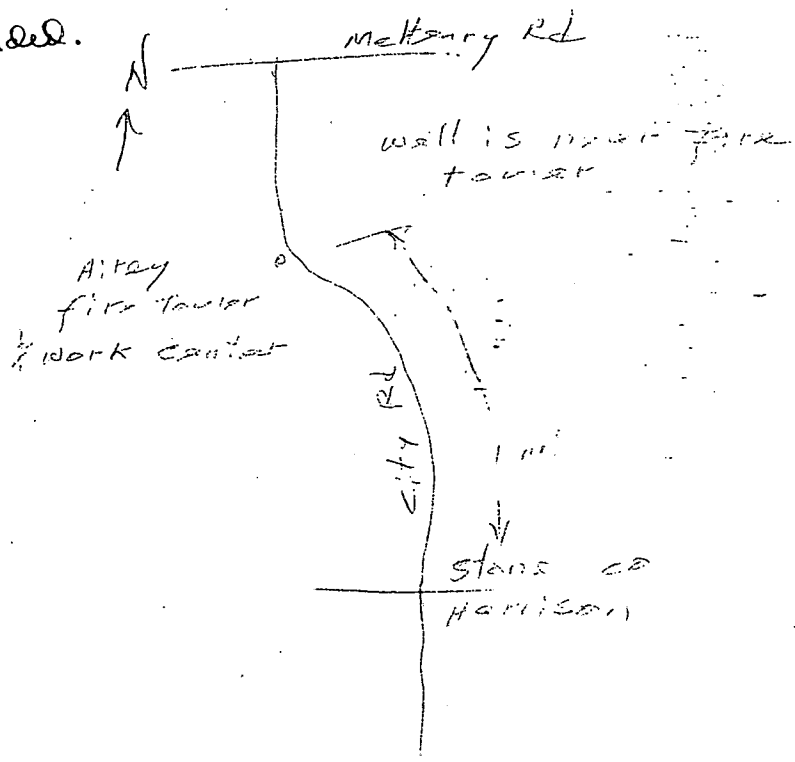 McHenry Rd
N
well is near fire
tower
Airey
fire Tower
& work center
City Rd
1 mi
Stone co
Harrison